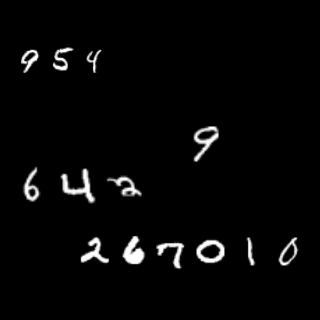 954
9
642
267010